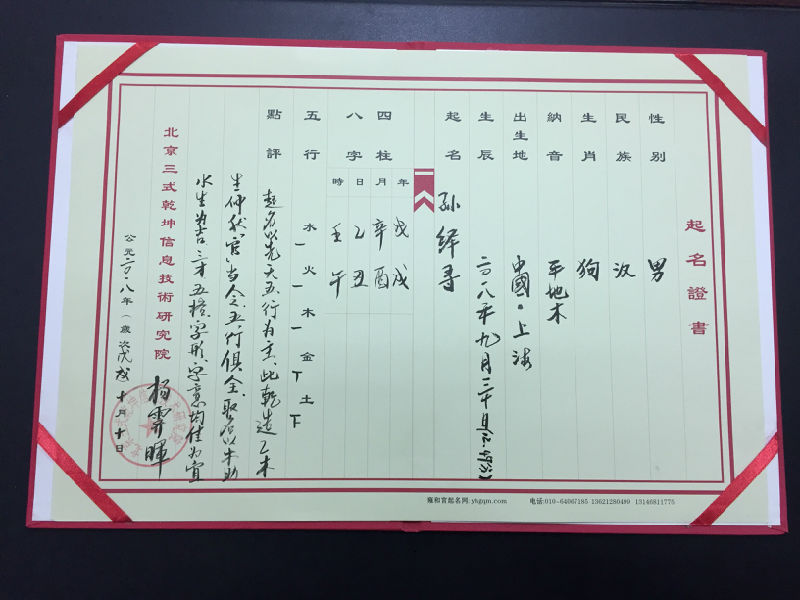 起名證書
性别 男
民族 汉
生肖 狗
納音 平地木
出生地 中國·上海
生辰 二〇一八年九月三十日(12.49分)
起名 孙绎尋
四柱八字 年 月 日 時
戊戌 辛酉 乙丑 壬午
五行 水一 火一 木一 金丅 土下
點評 起名以先天五行为主、此乾造乙木
生仲秋"官"当令、五行俱全、取名以木助
水生为吉、三才五格、字形、字意均佳为宜
北京三式乾坤信息技術研究院 杨霁暉
公元二〇一八年(歲次戊戌 十月十日
雍和宫起名网: yhgqm.com 电话:010-64067185 13621280499 13146811775